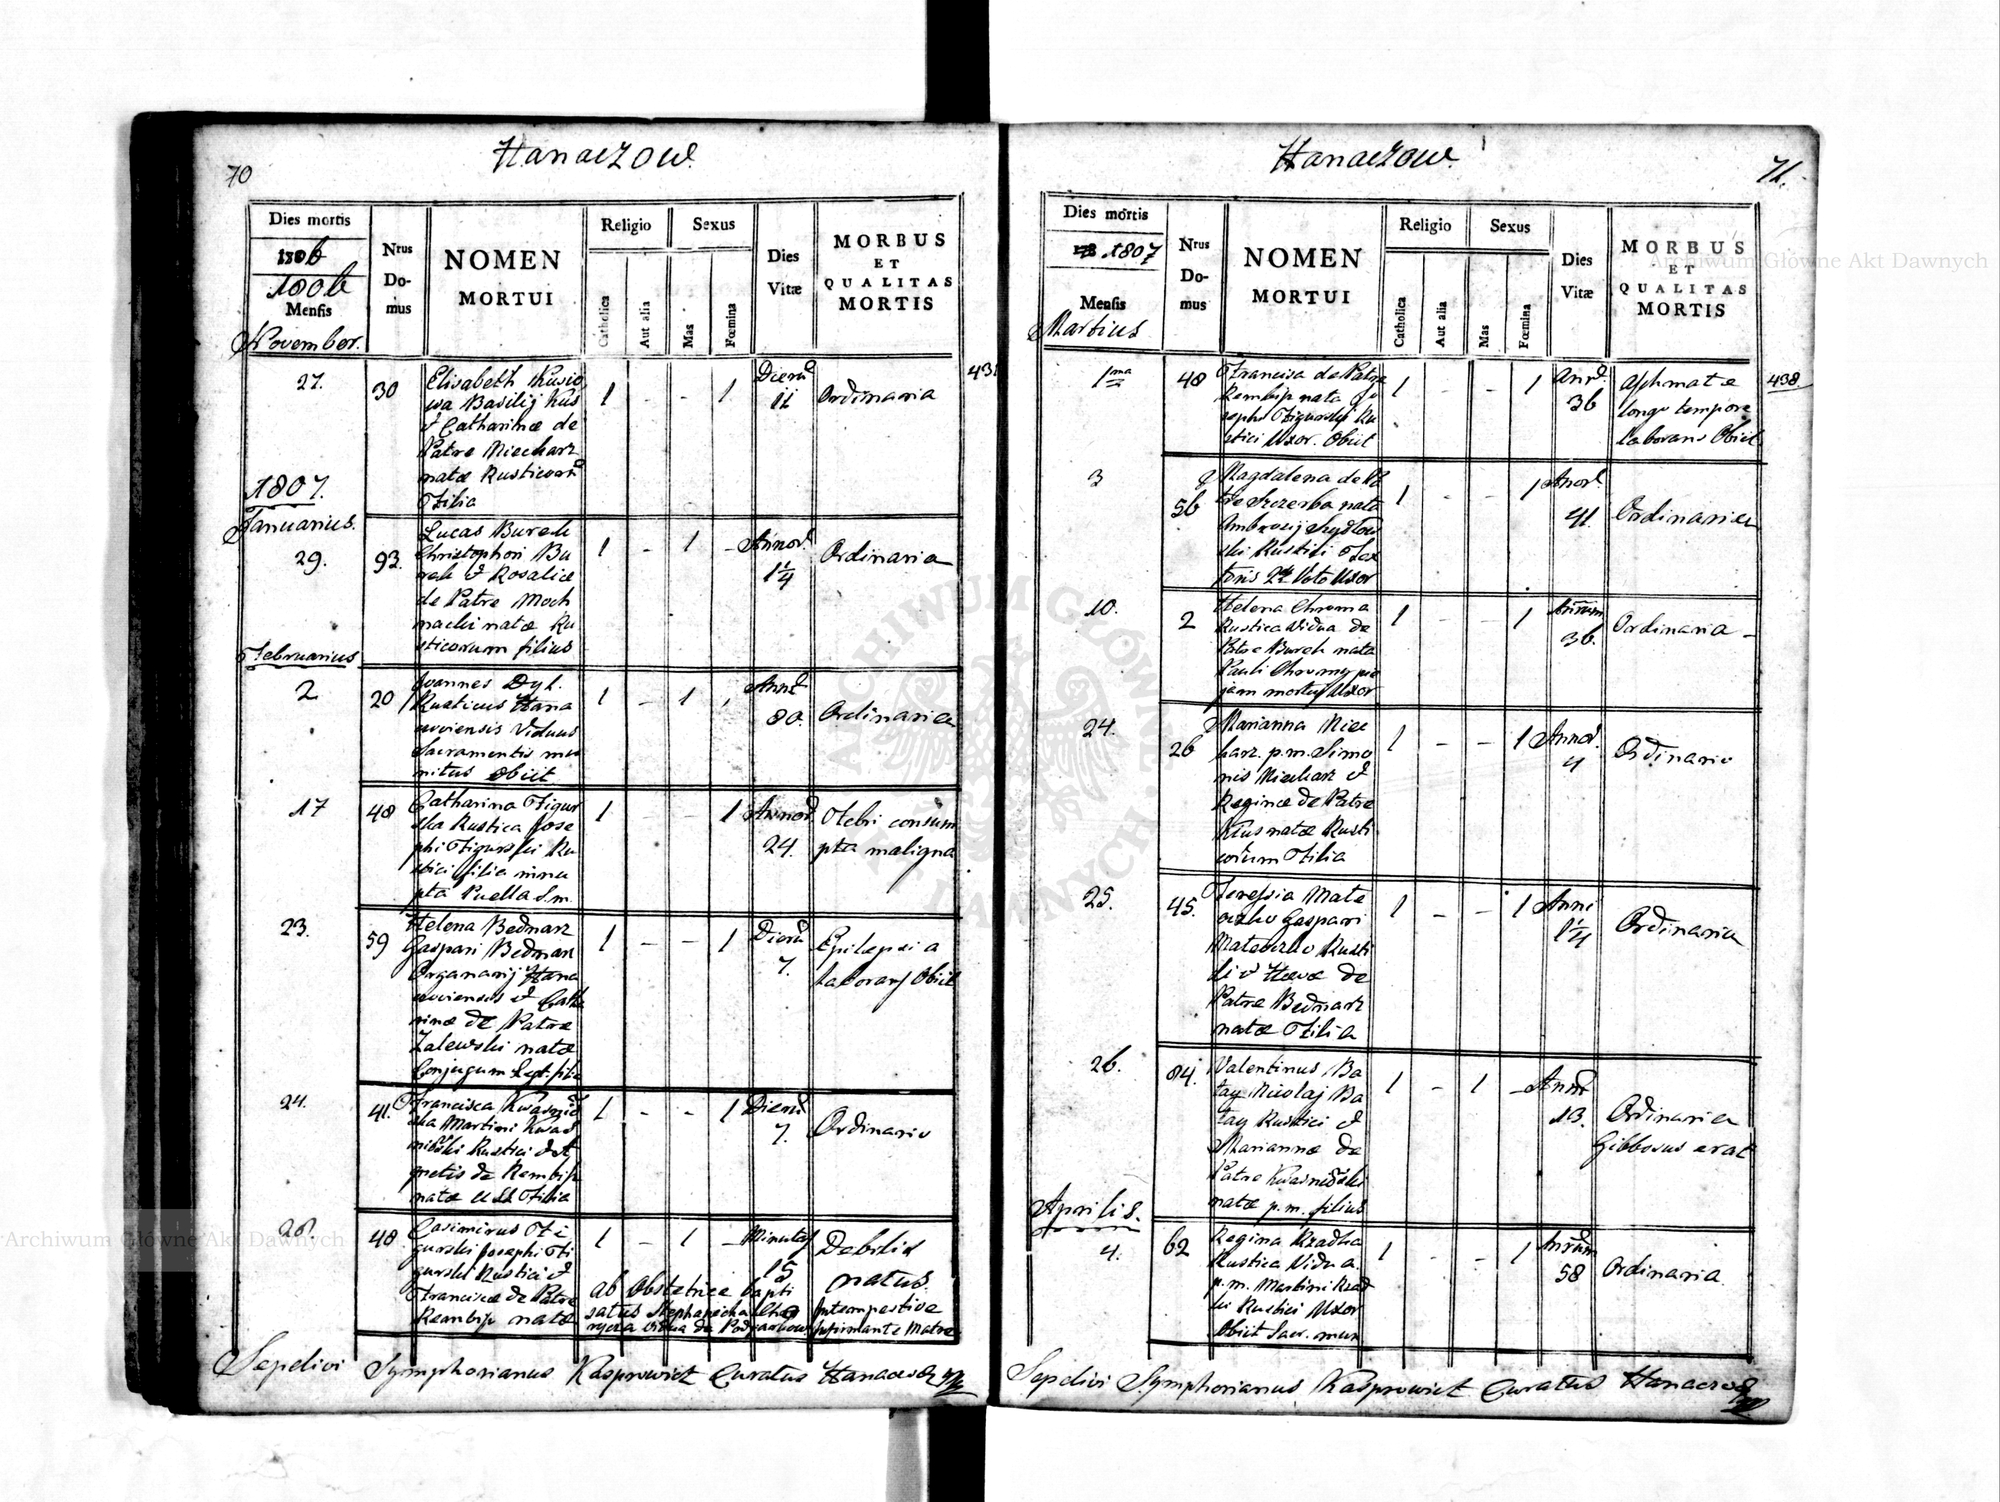 70
Hanaczow.
Dies mortis
1806
1806
Mensis
November.
Nrus
Do-
mus
NOMEN
MORTUI
Religio
Sexus
Catholica
Aut alia
Mas
Fœmina
Dies
Vitæ
MORBUS
ET
QUALITAS
MORTIS
27.
30
Elisabeth
Basilij Kus
& Catharinæ de
Patre Miecharz
natæ Rusticorum
Filia
1 - - 1
Dierum
11
Ordinaria
1807.
Januarius.
29.
92.
Lucas Bureh
Christophori Bu
reh & Rosaliæ
de Patre Moch
nacki natæ Ru
sticorum filius
1 - 1 -
Annor.
1 1/4
Ordinaria
Februarius
2
20
Joannes Dyl.
Rusticus Hana
coviensis Viduus
Sacramentis mu
nitus obiit
1 - 1
Annor.
80.
Ordinaria
17
48
Catharina Figur
ska Rustica Jose
phi Figurski Ru
stici filia innu
pta Puella S.m.
1 - - 1
Annor.
24.
Febri consum
pta maligna
23.
59
Helena Bednarz
Gaspari Bednarz
Organarij Hana
coviensis & Catha
rinæ de Patre
Zalewski natæ
Conjugum Legt. filia
1 - - 1
Dierum
7.
Epilepsia
laborans Obiit
24.
41.
Francisca Kwasnio
ska Martini Kwas
nioski Rustici & A
gnetis de Rembisz
natæ Filia
1 - - 1
Dierum
7.
Ordinario
28.
48.
Casimirus Fi
gurski Josephi Fi
gurski Rustici &
Franciscæ de Patre
Rembisz natæ
1 - 1 -
Minutas
15
ab Obstetrice bapti
satus
vidua de
Debilis
natus.
Intempestive
affirmante Matre
Sepelivi Symphorianus Kasprowicz Curatus
Hanaczow.
71.
Dies mortis
1807
Mensis
Martius
Nrus
Do-
mus
NOMEN
MORTUI
Religio
Sexus
Catholica
Aut alia
Mas
Fœmina
Dies
Vitæ
MORBUS
ET
QUALITAS
MORTIS
1ma
48
Francisca de Patre
Rembisz nata Jo
sephi Figurski Ru
stici Uxor. Obiit
1 - - 1
Annor.
36
Asthmate
longo tempore
laborans Obiit
438.
3
56
Magdalena de Pa
tre Szczerba nata
Ambrozij Szydlow
ski Rustici Tex
toris 2di Voto Uxor
1 - - 1
Annor.
41.
Ordinaria
10.
2
Helena Chroma
Rustica Vidua de
Patre Bureh nata
Pauli Chromy pie
jam mortuj Uxor
1 - - 1
Annorum
36.
Ordinaria -
24.
26
Marianna Miec
harz. p.m. Simo
nis Miecharz &
Reginæ de Patre
Kus natæ Rusti
corum Filia
1 - - 1
Annor.
4
Ordinario
25.
45.
Teressia Mate
Gaspari
Rusti
ci & Hevæ de
Patre Bednarz
natæ Filia
1 - - 1
Anni
1 1/4
Ordinaria
26.
84.
Valentinus Ba
tay Nicolaj Ba
tay Rustici &
Mariannæ de
Patre Kwasnioski
natæ p.m. filius
1 - 1 -
Annor.
13.
Ordinaria
Gibbosus erat
Aprilis.
4.
62
Regina Rzadka
Rustica Vidua.
p.m. Martini Rzad
ki Rustici Uxor
Obiit Sacr. mun
1 - - 1
Annorum
58
Ordinaria
Sepelivi Symphorianus Kasprowicz Curatus
Archiwum Główne Akt Dawnych
Archiwum Główne Akt Dawnych
ARCHIWUM GŁÓWNE AKT DAWNYCH